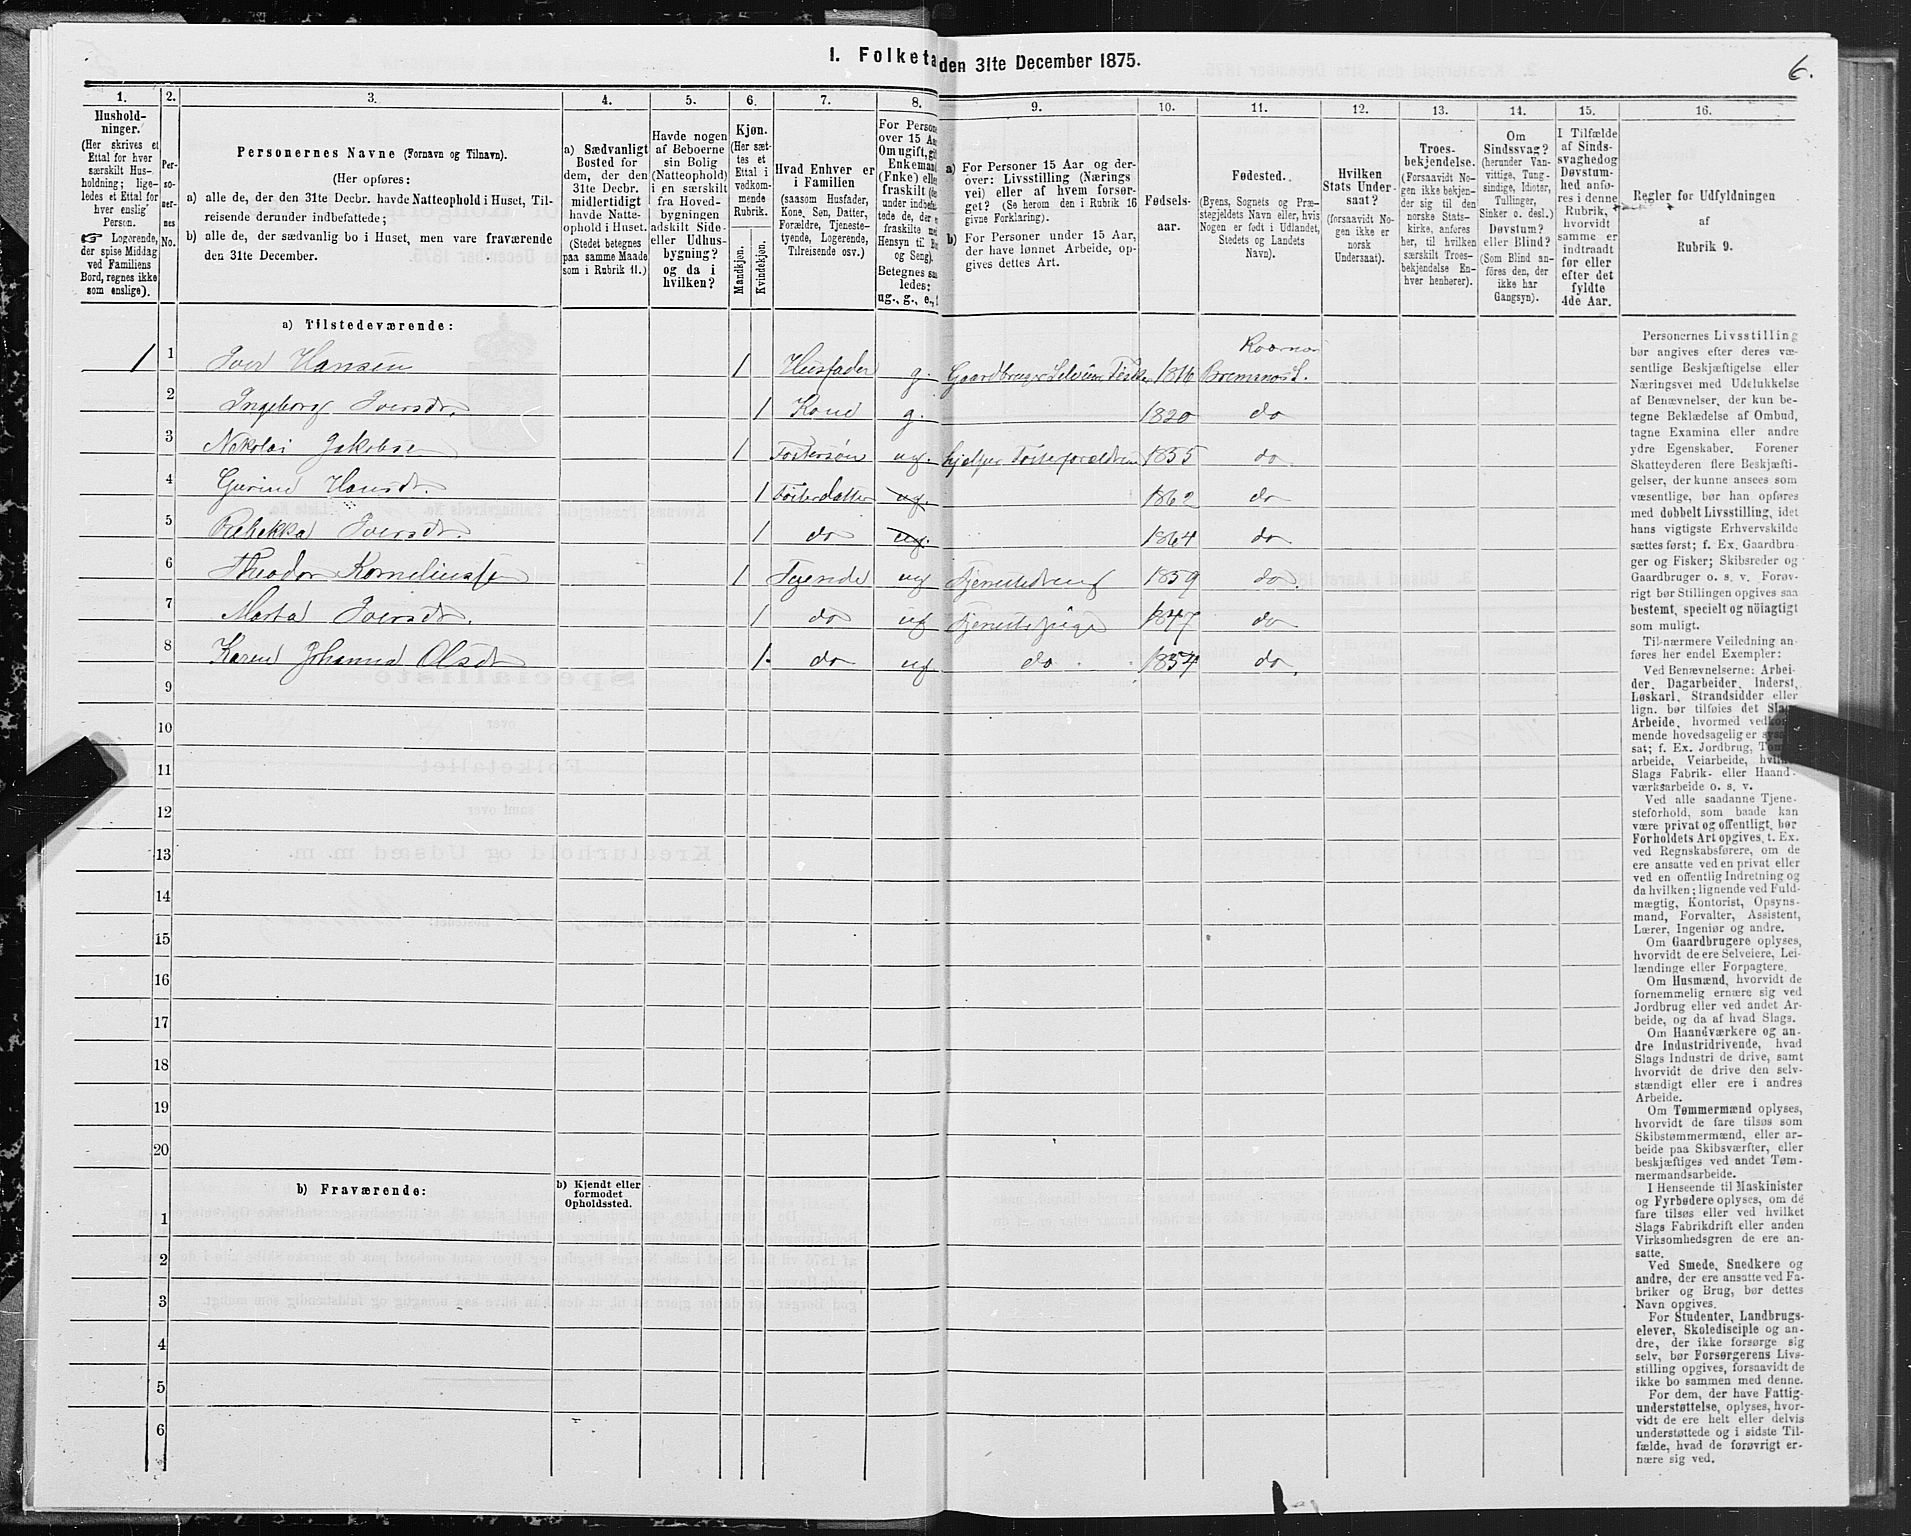 6.
1. Folketa den 31te December 1875.
1. 2. 3. 4. 5. 6. 7. 8. 9. 10. 11. 12. 13. 14. 15. 16.
Hushold-
ninger.
(Her skrives et
Ettal for hver
særskilt Hus-
holdning; lige-
ledes et Ettal for
hver enslig
Person.
☞ Logerende,
der spise Middag
ved Familiens
Bord, regnes ikke
som enslige).
Per-
so-
ner-
nes
No.
Personernes Navne (Fornavn og Tilnavn).
(Her opføres:
a) alle de, der den 31te Decbr. havde Natteophold i Huset, Til-
reisende derunder indbefattede;
b) alle de, der sædvanlig bo i Huset, men vare fraværende
den 31te December.
a) Sædvanligt
Bosted for
dem, der den
31te Decbr.
midlertidigt
havde Natte-
ophold i Huset.
(Stedet betegnes
paa samme Maade
som i Rubrik 11.)
Havde nogen
af Beboerne
sin Bolig
(Natteophold)
i en særskilt
fra Hoved-
bygningen
adskilt Side-
eller Udhus-
bygning?
og da i
hvilken?
Kjøn.
(Her sæt-
tes et
Ettal i
vedkom-
mende
Rubrik.
Mandkjøn.
Kvindekjøn.
Hvad Enhver er
i Familien
(saasom Husfader,
Kone, Søn, Datter,
Forældre, Tjeneste-
tyende, Logerende,
Tilreisende osv.)
For Persone
over 15 Aa
Om ugift, gif
Enkemand
(Enke) elle
fraskilt (de
under indbefat
tede de, der e
fraskilte med
Hensyn til Bo
og Seng).
Betegnes saa
ledes:
ug., g., e., f
a) For Personer 15 Aar og der-
over: Livsstilling (Nærings
vei) eller af hvem forsør-
get? (Se herom den i Rubrik 16
givne Forklaring).
b) For Personer under 15 Aar,
der have lønnet Arbeide, op-
gives dettes Art.
Fødsels-
aar.
Fødested.
(Byens, Sognets og Præ-
stegjeldets Navn eller, hvis
Nogen er født i Udlandet,
Stedets og Landets
Navn).
Hvilken
Stats Under-
saat?
(forsaavidt No-
gen ikke er
norsk
Undersaat).
Troes-
bekjendelse.
(Forsaavidt No-
gen ikke bekjen-
der sig til den
norske Stats-
kirke, anføres
her, til hvilken
særskilt Troes-
bekjendelse En-
hver henhører).
Om
Sindssvag?
(herunder Van-
vittige, Tung-
sindige, Idioter,
Tullinger,
Sinker o. desl.)
Døvstum?
eller Blind?
(Som Blind an-
føres den, der
ikke har
Gangsyn).
I Tilfælde
af Sinds-
svaghed og
Døvstum-
hed anfø-
res i denne
Rubrik,
hvorvidt
samme er
indtraadt
før eller
efter det
fyldte
4de Aar.
Regler for Udfyldningen
af
Rubrik 9.
a) Tilstedeværende:
Kvernes
1 1 Iver Hansen 1 Husfader g. Gaardbruger Selveier Fisker 1816 Bremsnes S.
2 Ingeborg Iversdr. 1 Kone g. 1820 do
3 Nekolai Jakobsen 1 Fostersøn ug. hjelper Fosterforældrene 1855 do
4 Gurine Hansdr. 1 Fosterdatter ug. 1862 do
5 Rebekka Iversdr. 1 do ug. 1864 do
6 Theodor Korneliussen 1 Tyende ug Tjenestedreng 1859 do.
7 Marta Iversdr. 1 do ug Tjenestepige 1847 do
8 Karen Johanna Olsdr 1 do ug do 1854 do
9
10
11
12
13
14
15
16
17
18
19
20
b) Fraværende:
b) Kjendt eller
formodet
Opholdssted.
1
2
3
4
5
6
Personernes Livsstilling
bør angives efter deres væ-
sentlige Beskjæftigelse eller
Næringsvei med Udelukkelse
af Benævnelser, der kun be-
tegne Beklædelse af Ombud,
tagne Examina eller andre
ydre Egenskaber. Forener
Skatteyderen flere Beskjæfti-
gelser, der kunne ansees som
væsentlige, bør han opføres
med dobbelt Livsstilling, idet
hans vigtigste Erhvervskilde
sættes først; f. Ex. Gaardbru-
ger og Fisker; Skibsreder og
Gaardbruger o. s. v. Forøv-
rigt bør Stillingen opgives saa
bestemt, specielt og nöiagtigt
som muligt.
Til nærmere Veiledning an-
føres her endel Exempler:
Ved Benævnelserne: Arbei-
der, Dagarbeider, Inderst,
Løskarl, Strandsidder eller
lign. bør tilføies det Slags
Arbeide, hvormed vedkom-
mende hovedsagelig er syssel-
sat; f. Ex. Jordbrug, Tømmer-
arbeide, Veiarbeide, hvilket
Slags Fabrik- eller Haand-
værksarbeide o. s. v.
Ved alle saadanne Tjene-
steforhold, som baade kan
være privat og offentligt, bør
Forholdets Art opgives, t. Ex.
ved Regnskabsførere, om de
ere ansatte ved en privat eller
ved en offentlig Indretning og
da hvilken; lignende ved Fuld-
mægtig, Kontorist, Opsyns-
mand, Forvalter, Assistent,
Lærer, Ingeniør og andre.
Om Gaardbrugere oplyses,
hvorvidt de ere Selveiere, Lei-
lændinge eller Forpagtere.
Om Husmænd, hvorvidt de
fornemmelig ernære sig ved
Jordbrug eller ved andet Ar-
beide, og da af hvad Slags.
Om Haandværkere og an-
dre Industridrivende, hvad
Slags Industri de drive, samt
hvorvidt de drive den selv-
stændigt eller ere i andres
Arbeide.
Om Tømmermænd oplyses,
hvorvidt de fare tilsøs som
Skibstømmermænd, eller ar-
beide paa Skibsværfter, eller
beskjæftiges ved andet Tøm-
mermandsarbeide.
I Henseende til Maskinister
og Fyrbødere oplyses, om de
fare tilsøs eller ved hvilket
Slags Fabrikdrift eller anden
Virksomhedsgren de ere an-
satte.
Ved Smede, Snedkere og
andre, der ere ansatte ved Fa-
briker og Brug, bør dettes
Navn opgives.
For Studenter, Landbrugs-
elever, Skoledisciple og an-
dre, der ikke forsørge sig
selv, bør Forsørgerens Livs-
stilling opgives, forsaavidt de
ikke bo sammen med denne.
For dem, der have Fattig-
understøttelse, oplyses, hvor-
vidt de ere helt eller delvis
understøttede og i sidste Til-
fælde, hvad de forøvrigt er-
nære sig ved.